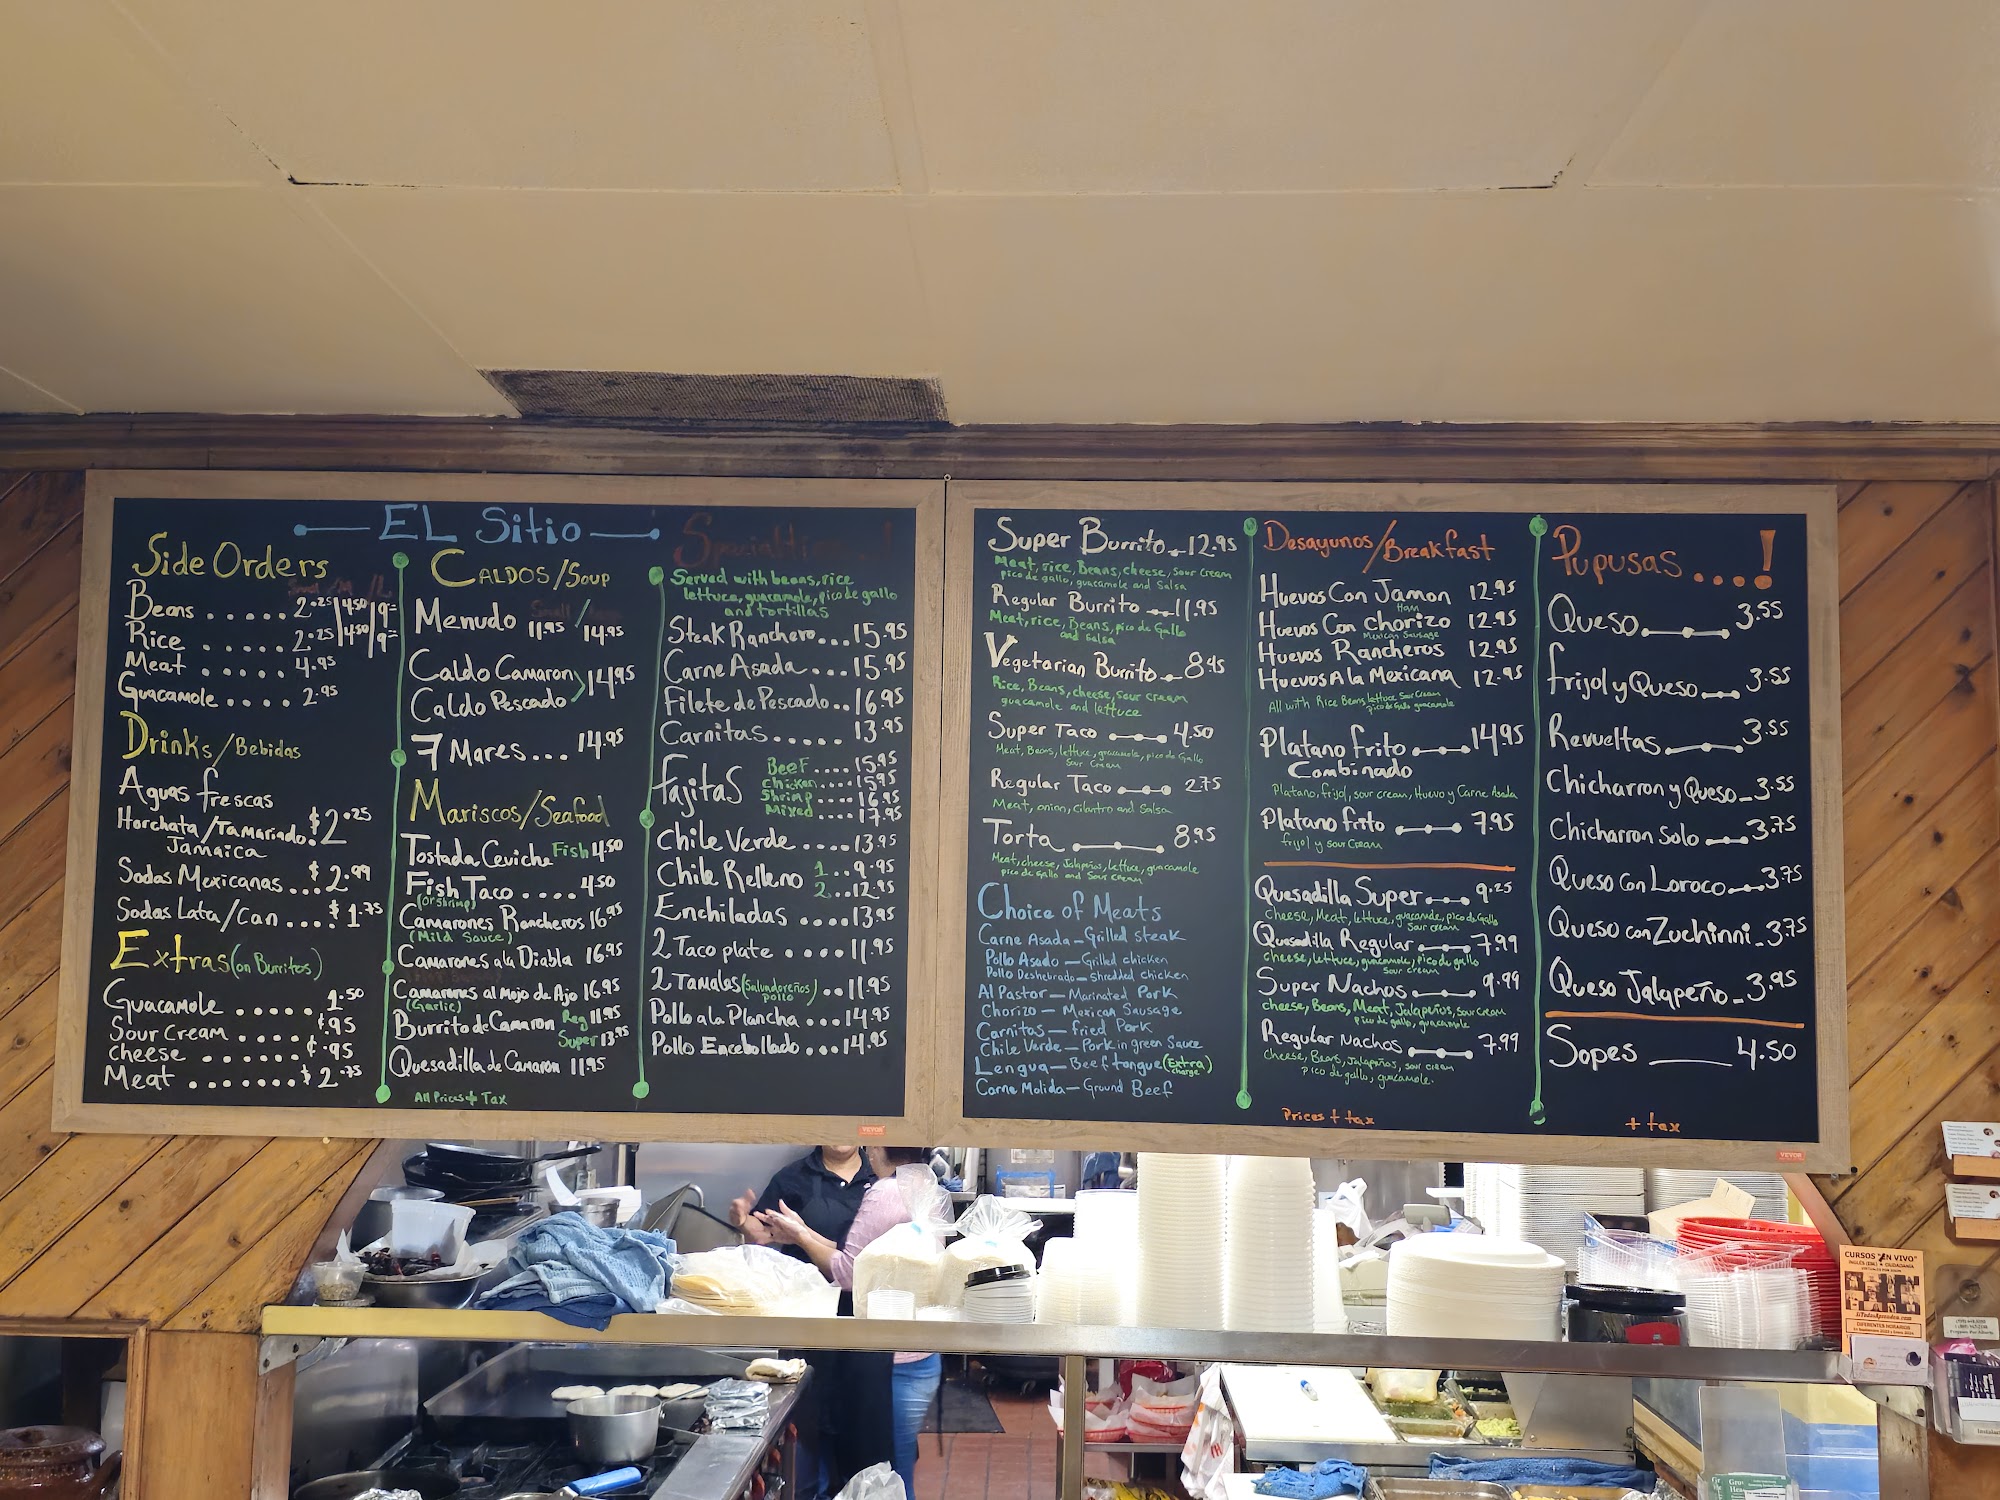 EL Sitio
Side Orders
Beans ..... 2.25 | 4.50 | 9=
Rice ..... 2.25 | 4.50 | 9=
Meat .... 4.95
Guacamole .... 2.95
Drinks/Bebidas
Aguas frescas
Horchata/Tamarindo. $2.25
Jamaica
Sodas Mexicanas ... $2.99
Sodas Lata/Can .... $1.75
Extras (on Burritos)
Guacamole ..... 1.50
Sour Cream .... .95
cheese ...... .95
Meat ....... $2.75
CALDOS/Soup
Small /
Menudo 11.95 / 14.95
Caldo Camaron
Caldo Pescado > 14.95
7 Mares... 14.95
Mariscos/Seafood
Tostada Ceviche Fish 4.50
Fish Taco .... 4.50
(or shrimp)
Camarones Rancheros 16.95
(Mild Sauce)
Camarones a la Diabla 16.95
Camarones al Mojo de Ajo 16.95
(Garlic)
Burrito de Camaron Reg 11.95
Super 13.95
Quesadilla de Camaron 11.95
All Prices + Tax
Served with beans, rice
lettuce, guacamole, pico de gallo
and tortillas
Steak Ranchero... 15.95
Carne Asada .... 15.95
Filete de Pescado.. 16.95
Carnitas..... 13.95
Fajitas Beef .... 15.95
chicken .... 15.95
Shrimp .... 16.95
Mixed .... 17.95
Chile Verde .... 13.95
Chile Relleno 1... 9.95
2... 12.95
Enchiladas .... 13.95
2 Taco plate .... 11.95
2 Tamales (Salvadoreños) .. 11.95
pollo
Pollo a la Plancha ... 14.95
Pollo Encebollado ... 14.95
Super Burrito 12.95
Meat, rice, Beans, cheese, sour cream
pico de gallo, guacamole and Salsa
Regular Burrito 11.95
Meat, rice, Beans, pico de Gallo
and Salsa
Vegetarian Burrito 8.95
Rice, Beans, cheese, sour cream
guacamole and lettuce
Super Taco 4.50
Meat, Beans, lettuce, guacamole, pico de Gallo
Sour Cream
Regular Taco 2.75
Meat, onion, cilantro and Salsa
Torta 8.95
Meat, cheese, Jalapeños, lettuce, guacamole
pico de Gallo and Sour Cream
Choice of Meats
Carne Asada — Grilled steak
Pollo Asado — Grilled chicken
Pollo Deshebrado — shredded chicken
Al Pastor — Marinated Pork
Chorizo — Mexican Sausage
Carnitas — fried Pork
Chile Verde — Pork in green Sauce
Lengua — Beef tongue (Extra charge)
Carne Molida — Ground Beef
Desayunos/Breakfast
Huevos Con Jamon 12.95
Ham
Huevos Con chorizo 12.95
Mexican Sausage
Huevos Rancheros 12.95
Huevos A la Mexicana 12.95
All with Rice Beans lettuce Sour Cream
pico de Gallo guacamole
Platano frito 14.95
Combinado
Platano, frijol, sour cream, Huevo y Carne Asada
Platano frito 7.95
frijol y sour Cream
Quesadilla Super 9.25
Cheese, Meat, lettuce, guacamole, pico de Gallo
Sour cream
Quesadilla Regular 7.99
cheese, lettuce, guacamole, pico de gallo
Sour cream
Super Nachos 9.99
cheese, Beans, Meat, Jalapeños, sour cream
pico de gallo, guacamole
Regular Nachos 7.99
Cheese, Beans, Jalapeños, sour cream
pico de gallo, guacamole.
Prices + tax
Pupusas ....!
Queso 3.55
frijol y Queso 3.55
Revueltas 3.55
Chicharron y Queso 3.55
Chicharron Solo 3.75
Queso Con Loroco 3.75
Queso con Zuchinni 3.75
Queso Jalapeño 3.95
Sopes 4.50
+ tax
VEVOR
VEVOR
CURSOS "EN VIVO"
DIFERENTES HORARIOS